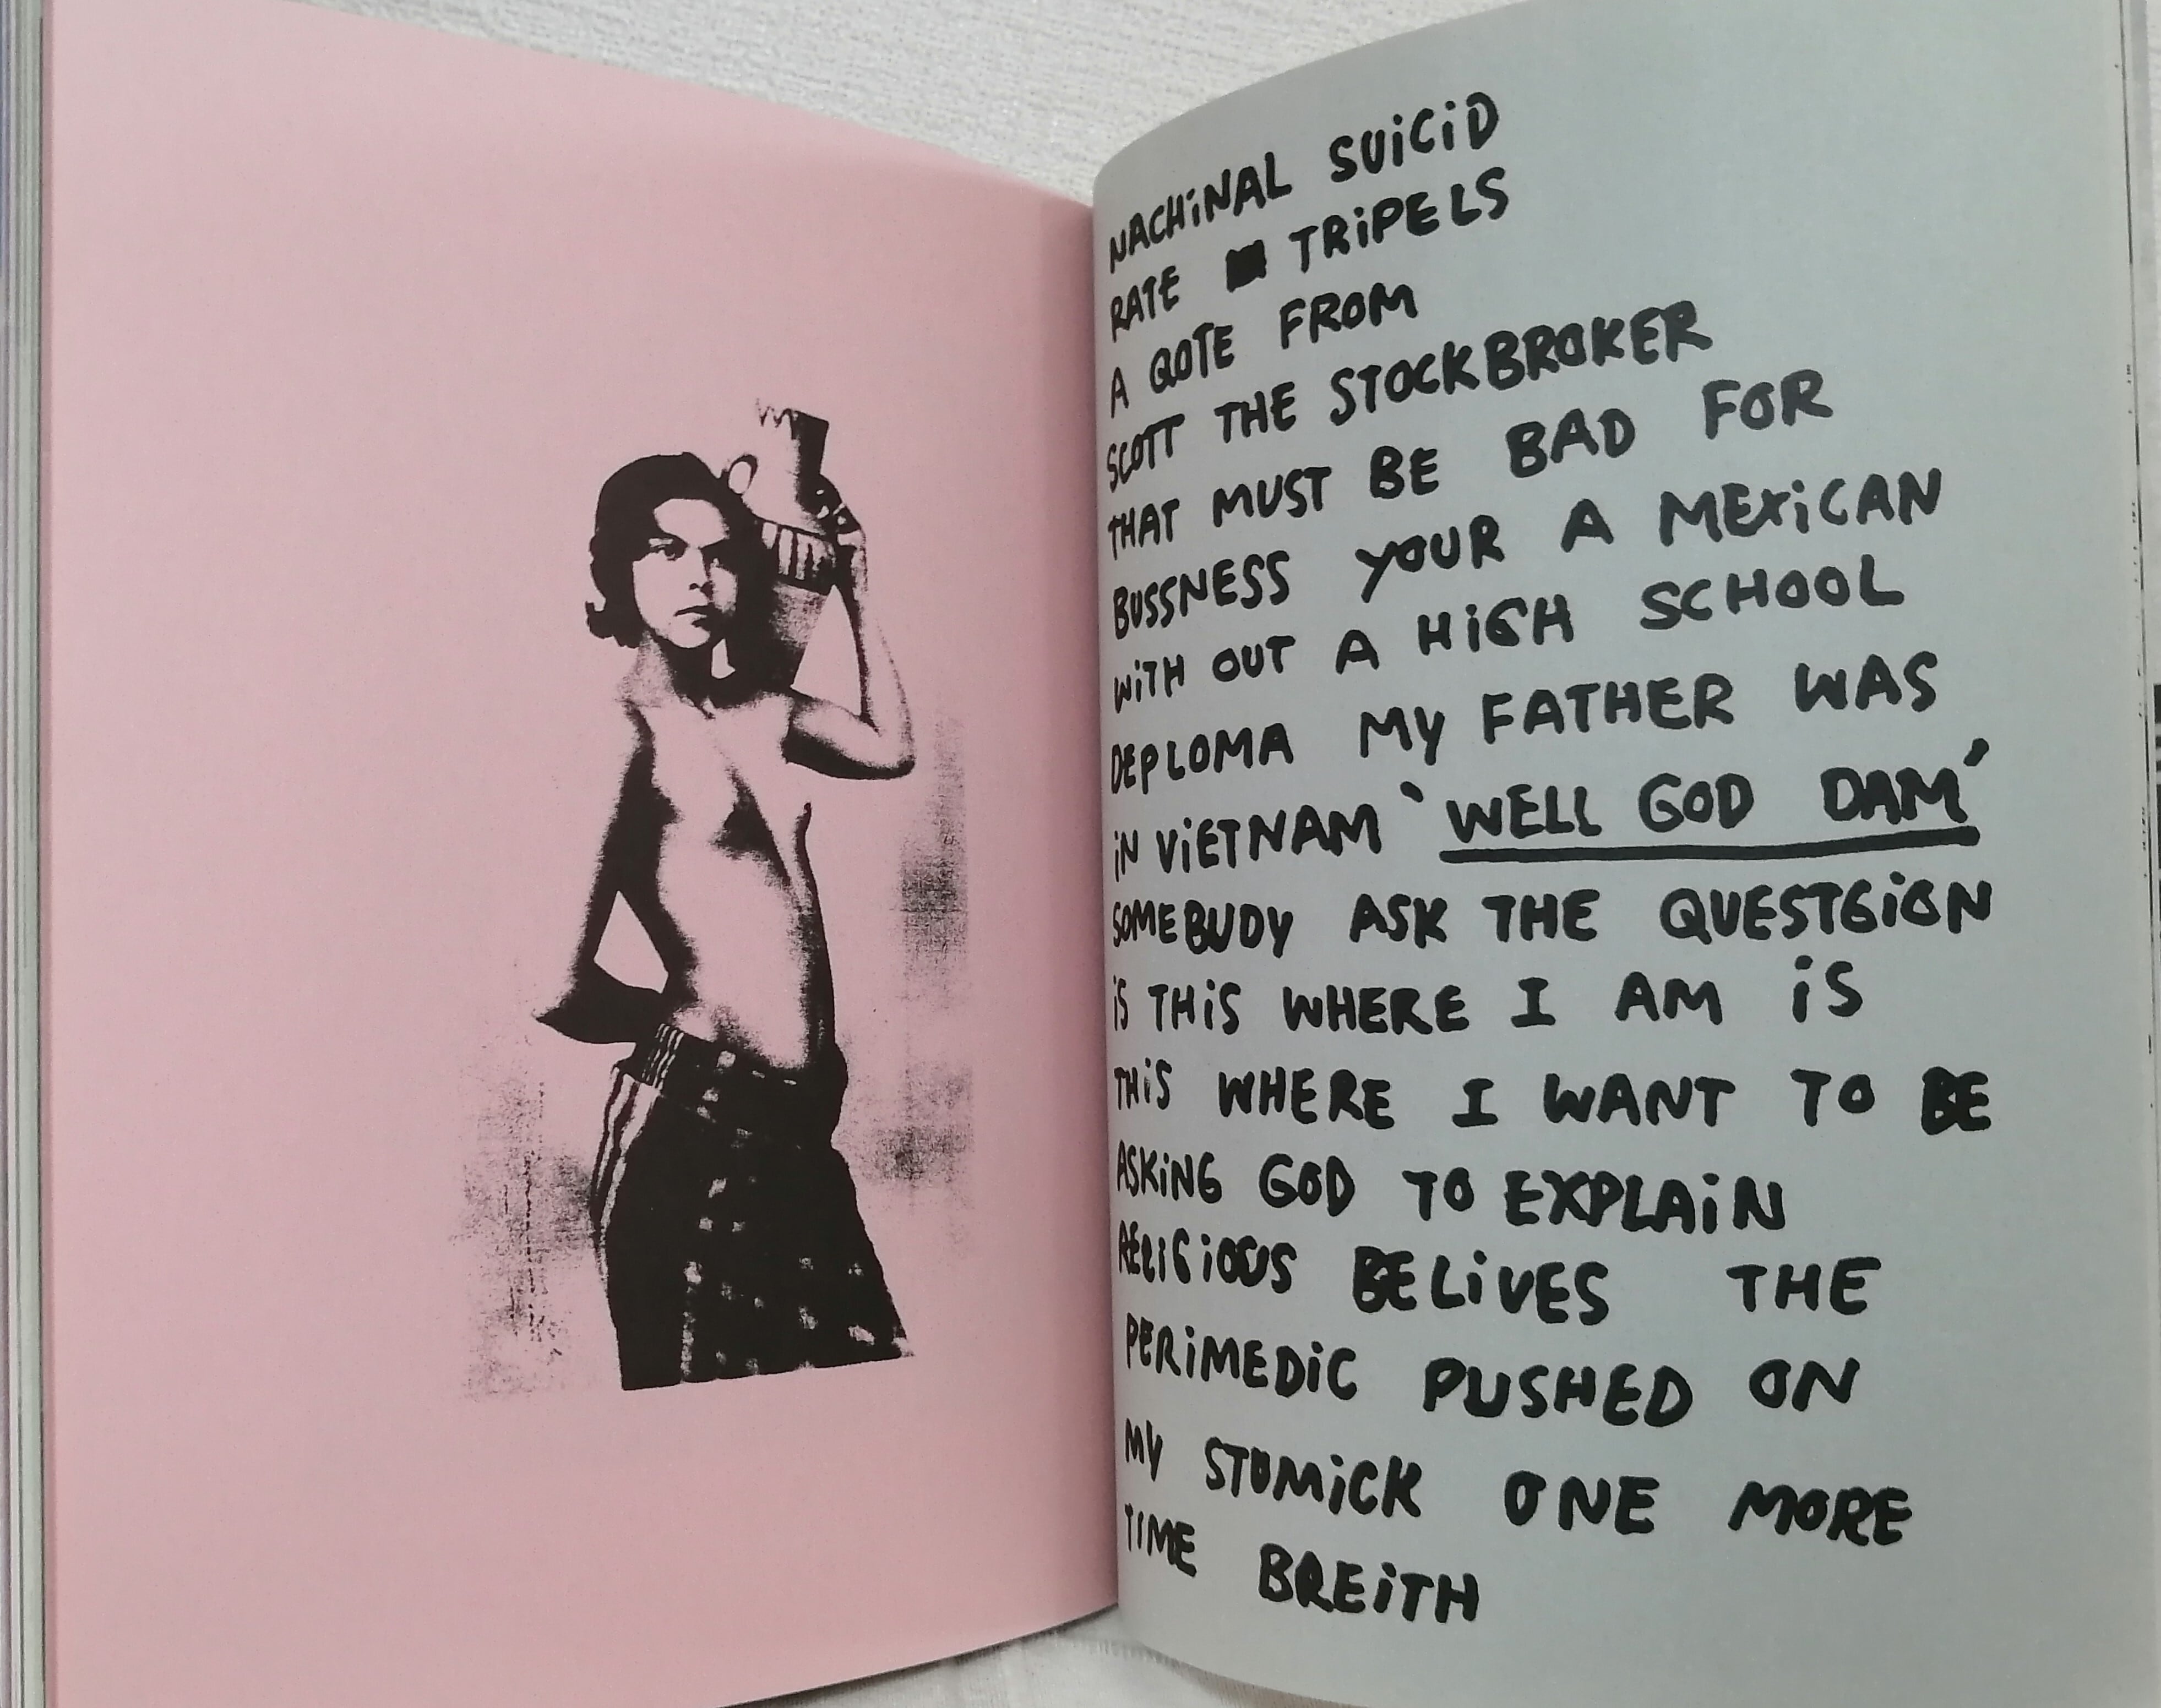 NACHINAL SUICID
RATE TRIPELS
A QOTE FROM
SCOTT THE STOCKBROKER
THAT MUST BE BAD FOR
BUSSNESS YOUR A MEXICAN
WITH OUT A HIGH SCHOOL
DEPLOMA MY FATHER WAS
IN VIETNAM 'WELL GOD DAM'
SOMEBUDY ASK THE QUESTGION
IS THIS WHERE I AM IS
THIS WHERE I WANT TO BE
ASKING GOD TO EXPLAIN
RELIGIOUS BELIVES THE
PERIMEDIC PUSHED ON
MY STUMICK ONE MORE
TIME BREITH